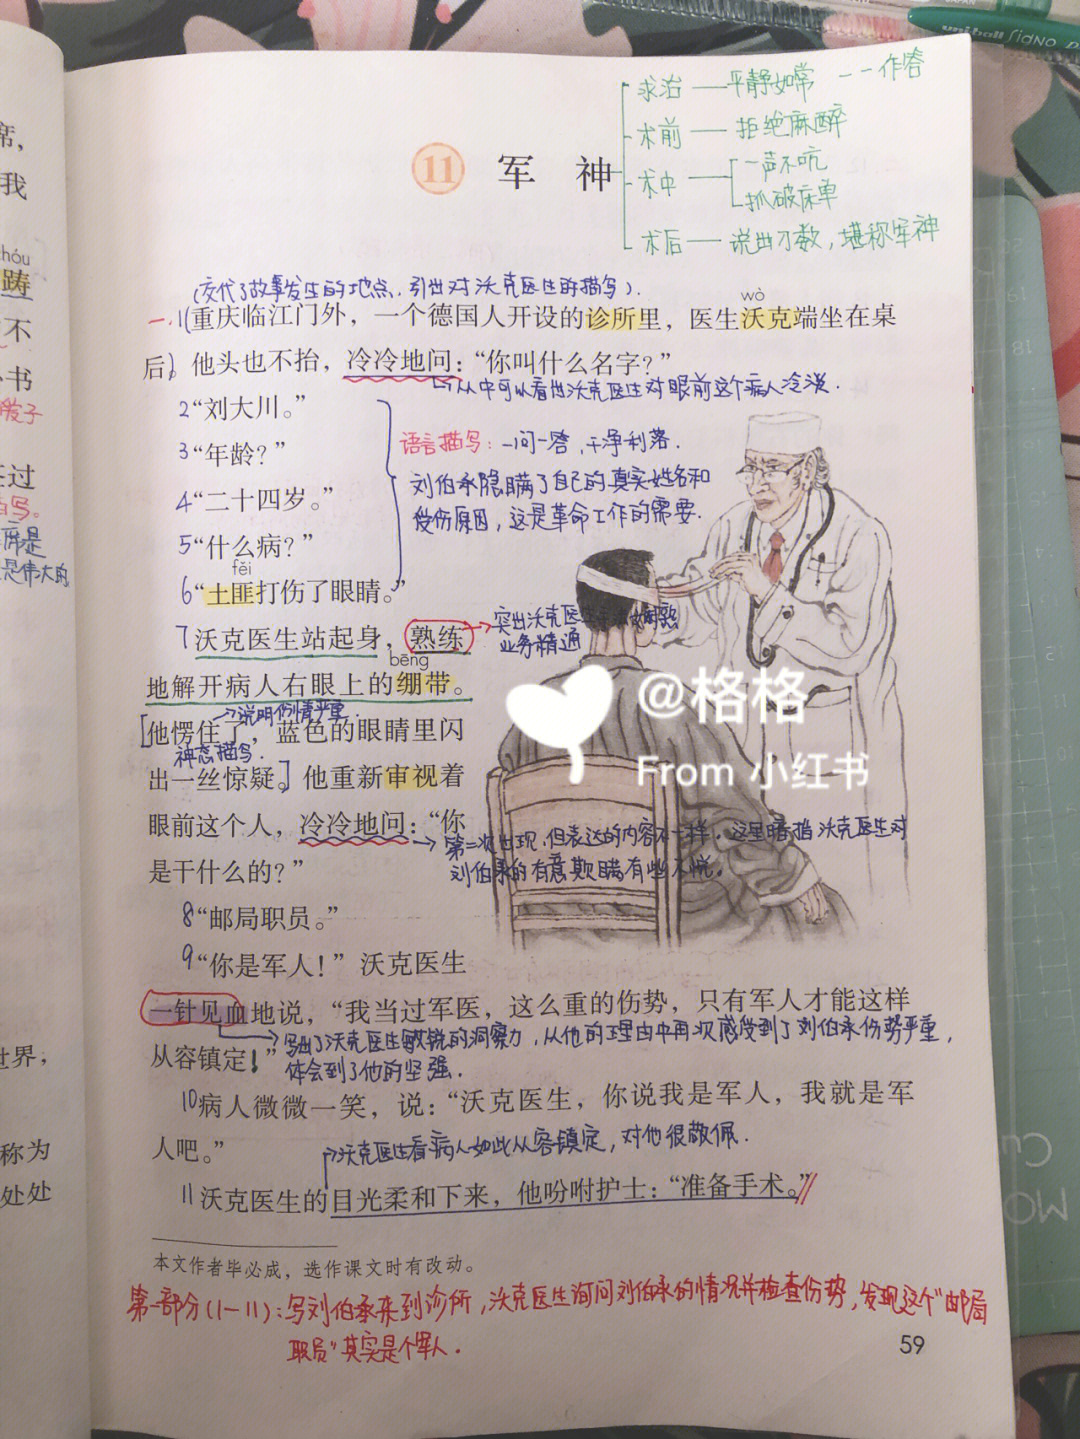 uniball SIGNO
求治——平静如常 ——作答
术前——拒绝麻醉
术中——一声不吭
抓破床单
术后——说出刀数，堪称军神
11 军神
(交代了故事发生的地点，引出对沃克医生的描写)。
wò
一.1(重庆临江门外，一个德国人开设的诊所里，医生沃克端坐在桌
后)。他头也不抬，冷冷地问：“你叫什么名字？”
从中可以看出沃克医生对眼前这个病人冷淡.
2“刘大川。”
3“年龄？”
语言描写：一问一答，干净利落.
4“二十四岁。”
刘伯承隐瞒了自己的真实姓名和
受伤原因，这是革命工作的需要.
5“什么病？”
fěi
6“土匪打伤了眼睛。”
7沃克医生站起身，熟练
突出沃克医
业务精通
bēng
地解开病人右眼上的绷带。
→说明伤情严重.
[他愣住了，蓝色的眼睛里闪
神态描写.
出一丝惊疑。]他重新审视着
眼前这个人，冷冷地问：“你
→第二次出现，但表达的内容不一样，这里暗指沃克医生对
刘伯承的有意欺瞒有些不悦.
是干什么的？”
8“邮局职员。”
9“你是军人！”沃克医生
一针见血地说，“我当过军医，这么重的伤势，只有军人才能这样
→写出了沃克医生敏锐的洞察力，从他的理由中再次感受到了刘伯承伤势严重，
从容镇定！”
体会到了他的坚强.
10病人微微一笑，说：“沃克医生，你说我是军人，我就是军
人吧。”
→沃克医生看病人如此从容镇定，对他很敬佩.
11沃克医生的目光柔和下来，他吩咐护士：“准备手术。”//
本文作者毕必成，选作课文时有改动。
第一部分(1—11)：写刘伯承来到诊所，沃克医生询问刘伯承的情况并检查伤势，发现这个“邮局
职员”其实是个军人.
59
@格格
From 小红书
席，
我
chóu
踌
不
书
过
世界；
称为
处处